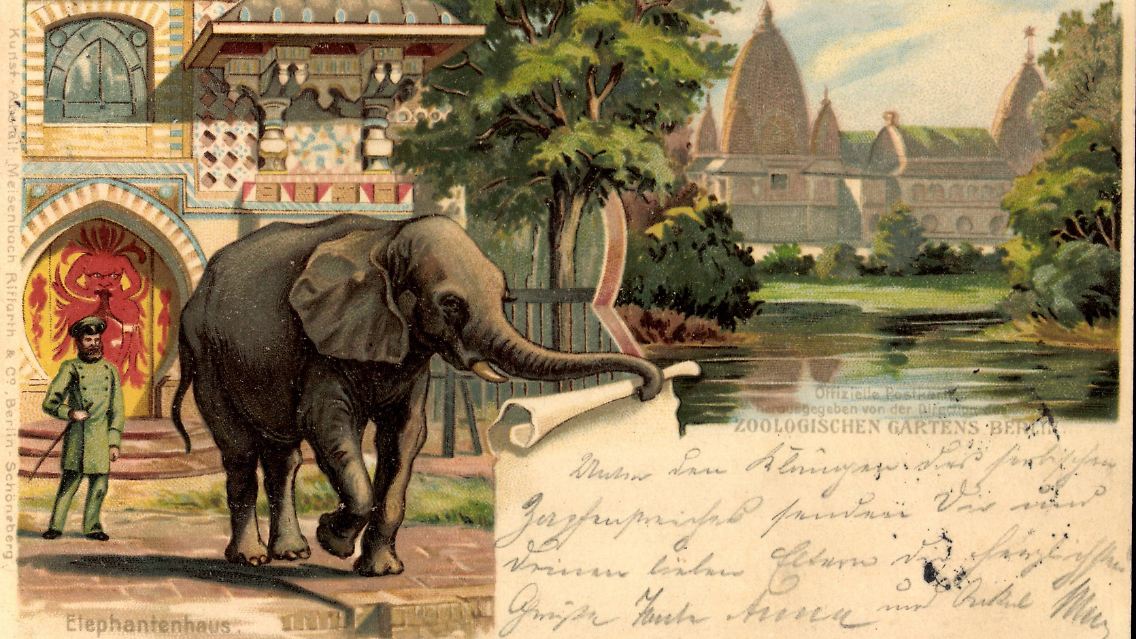 Kunst-Anstalt Meisenbach Riffarth & Co, Berlin-Schöneberg.
Offizielle Postkarte
herausgegeben von der
ZOOLOGISCHEN GARTENS BERLIN.
Unter den Klängen des serbischen
Zapfenstreiches senden Dir und
Deinen lieben Eltern die herzlichsten
Grüße Tante Anna und Onkel Max
Elephantenhaus.